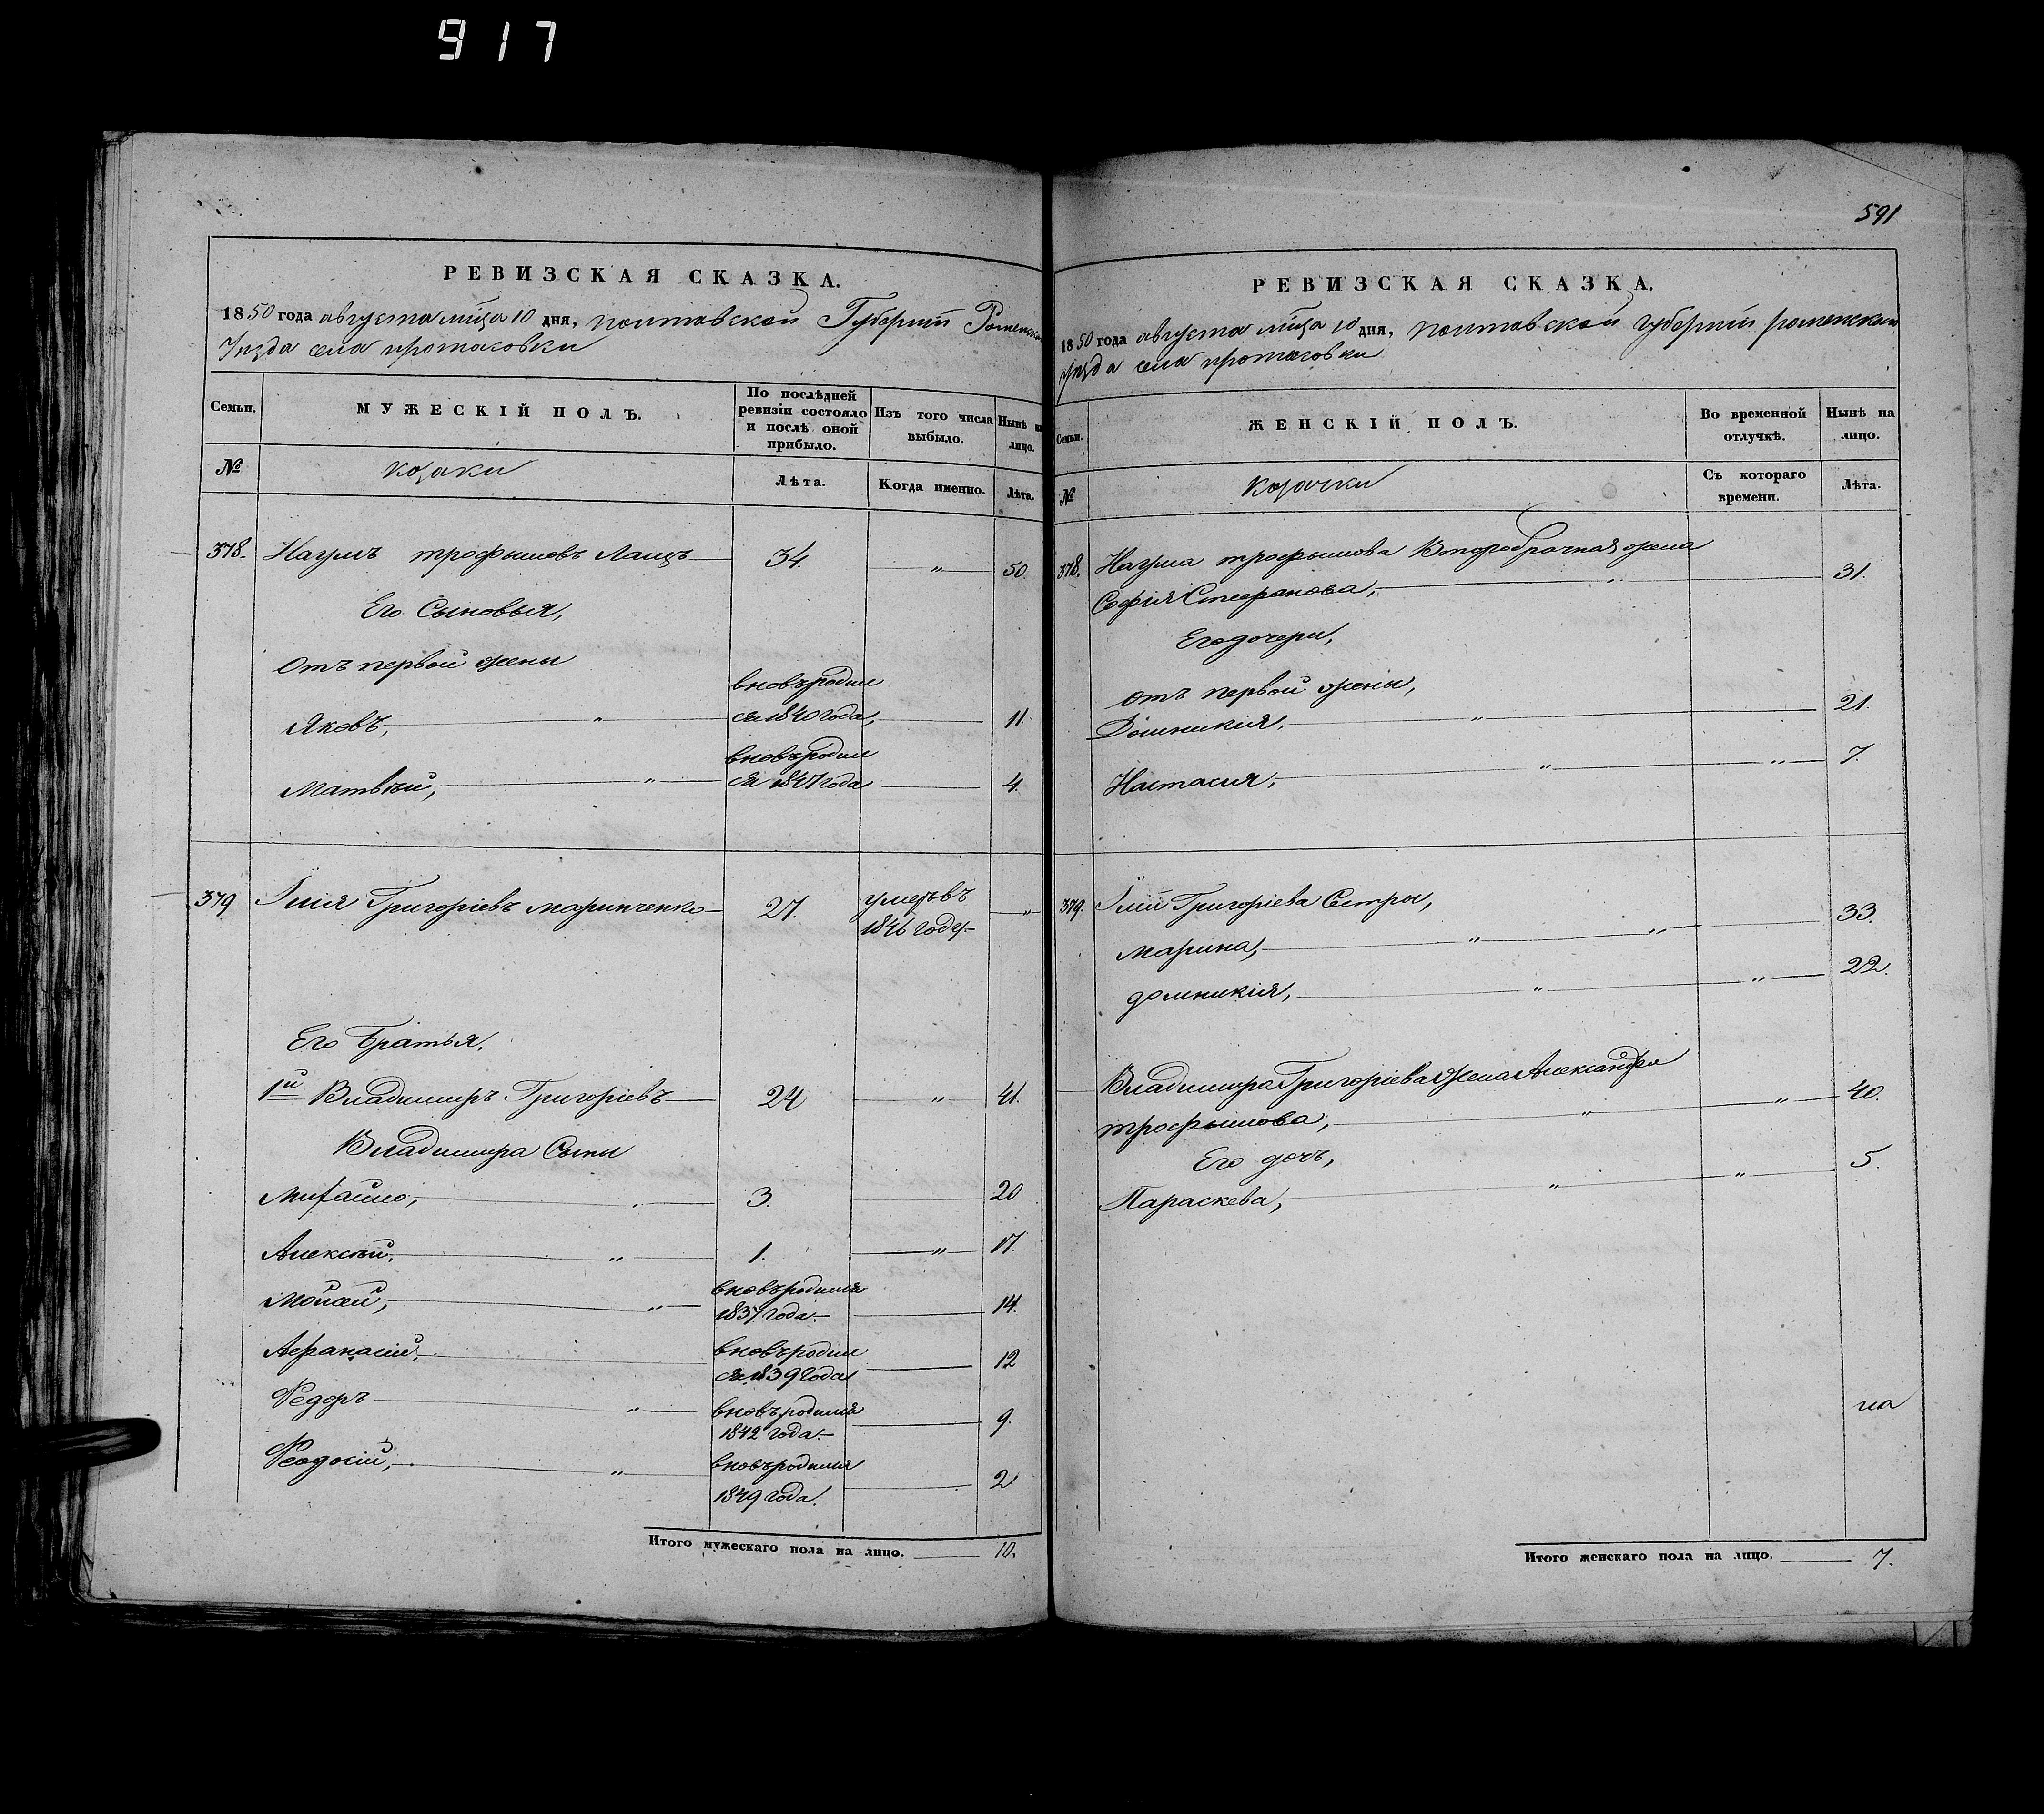 917
РЕВИЗСКАЯ СКАЗКА.
1850 года августа мца 10 дня, полтавской Губерніи Роменска
Уѣзда села протасовки
Семьи.
МУЖЕСКІЙ ПОЛЪ.
По послѣдней
ревизіи состояло
и послѣ оной
прибыло.
Изъ того числа
выбыло.
Нынѣ на
лицо.
№
козаки
Лѣта.
Когда именно.
Лѣта.
378. Наумъ трофымовъ Лащъ 34. " 50.
Его Сыновья,
Отъ первой жены
Яковъ, " вновъродил
ся 1840 года, 11.
Матвѣй, " вновъродил
ся 1847 года 4.
379 Илія Григоріевъ марипченко 27. умеръвъ
1846 году "
Его братья.
1й Владимиръ Григоріевъ 24 " 41.
Владимира Сыны
Михайло, 3. 20
Алексѣй, " 1. " 17.
Мойсей, " вновъродился
1837 года. 14.
Афанасій, вновъродил
ся 1839 года 12
Федоръ " вновъродился
1842 года. 9.
Феодосій, " вновъродился
1849 года. 2
Итого мужескаго пола на лицо. 10.
591
РЕВИЗСКАЯ СКАЗКА.
1850 года августа мца 10 дня, полтавской губерніи роменскаго
уѣзда села протасовки
Семьи.
ЖЕНСКІЙ ПОЛЪ.
Во временной
отлучкѣ.
Нынѣ на
лицо.
№
козачки
Съ котораго
времени.
Лѣта.
378. Наума трофымова Второбрачная жена
Софія Стефанова, " 31.
Его дочери,
отъ первой жены,
Домникія, " 21.
Настасія, " " 7.
379. Иліи Григоріева Сестры,
марина, " " 33.
домникія, " " 22.
Владимира Григоріева жена Александра
трофымова, " " 40.
Его дочъ,
Параскева, " " 5.
на
Итого женскаго пола на лицо. 7.